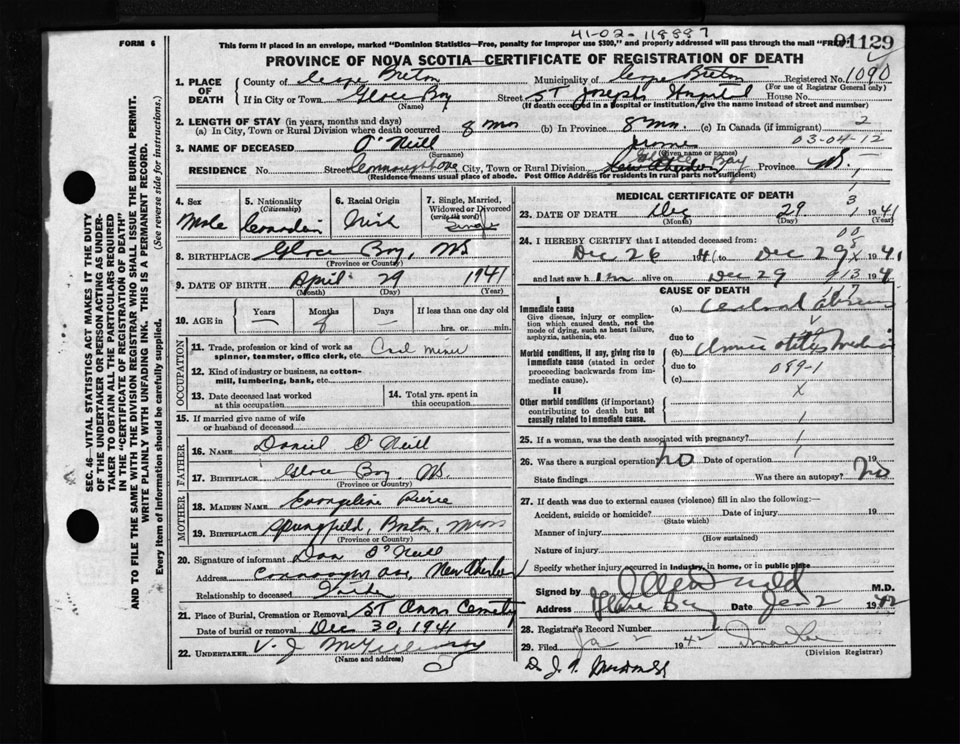 41-02-118887
FORM 6
This form if placed in an envelope, marked "Dominion Statistics—Free, penalty for improper use $300," and properly addressed will pass through the mail "FREE"
01129
PROVINCE OF NOVA SCOTIA—CERTIFICATE OF REGISTRATION OF DEATH
1. PLACE OF DEATH
County of Cape Breton Municipality of Cape Breton Registered No. 1090
(For use of Registrar General only)
If in City or Town Glace Bay Street St Josephs Hospital House No.
(Name) (If death occurred in a Hospital or institution/give the name instead of street and number)
2. LENGTH OF STAY (in years, months and days)
(a) In City, Town or Rural Division where death occurred 8 mos (b) In Province 8 mos (c) In Canada (if immigrant) 2
03-04-12
3. NAME OF DECEASED O'Neill
(Surname) (Given name or names)
RESIDENCE No. Street City, Town or Rural Division Glace Bay Province NS.
(Residence means usual place of abode. Post Office Address for residents in rural parts not sufficient)
4. Sex Male
5. Nationality (Citizenship) Canadian
6. Racial Origin Irish
7. Single, Married, Widowed or Divorced (write the word) Single
8. BIRTHPLACE Glace Bay, NS
(Province or Country)
9. DATE OF BIRTH April 29 1941
(Month) (Day) (Year)
10. AGE in Years — Months 8 Days — If less than one day old
hrs. or min.
OCCUPATION
11. Trade, profession or kind of work as spinner, teamster, office clerk, etc. Coal miner
12. Kind of industry or business, as cotton-mill, lumbering, bank, etc.
13. Date deceased last worked at this occupation
14. Total yrs. spent in this occupation
15. If married give name of wife or husband of deceased
FATHER
16. NAME Daniel O'Neill
17. BIRTHPLACE Glace Bay, NS.
(Province or Country)
MOTHER
18. MAIDEN NAME Evangeline Pierce
19. BIRTHPLACE Springfield, Boston, Mass
(Province or Country)
20. Signature of informant Dan O'Neill
Address New Aberdeen
Relationship to deceased Father
21. Place of Burial, Cremation or Removal St Anns Cemetry
Date of burial or removal Dec 30, 1941
22. UNDERTAKER V. J.
(Name and address)
MEDICAL CERTIFICATE OF DEATH
23. DATE OF DEATH Dec 29 1941
(Month) (Day) (Year)
24. I HEREBY CERTIFY that I attended deceased from:
Dec 26 1941 to Dec 29 1941
and last saw him alive on Dec 29 194
CAUSE OF DEATH
I
Immediate cause
Give disease, injury or complication which caused death, not the mode of dying, such as heart failure, asphyxia, asthenia, etc.
(a)
due to
Morbid conditions, if any, giving rise to immediate cause (stated in order proceeding backwards from immediate cause).
(b) otitis media
due to 089-1
(c)
II
Other morbid conditions (if important) contributing to death but not causally related to immediate cause.
X
25. If a woman, was the death associated with pregnancy?
26. Was there a surgical operation? no Date of operation 19
State findings Was there an autopsy? no
27. If death was due to external causes (violence) fill in also the following:—
Accident, suicide or homicide? Date of injury 19
(State which)
Manner of injury
(How sustained)
Nature of injury
Specify whether injury occurred in industry, in home, or in public place
Signed by M.D.
Address Glace Bay Date Jan 2 1942
28. Registrar's Record Number
29. Filed Ja 1942
(Division Registrar)
SEC. 46—VITAL STATISTICS ACT MAKES IT THE DUTY OF THE UNDERTAKER OR PERSON ACTING AS UNDERTAKER TO OBTAIN ALL THE PARTICULARS REQUIRED IN THE "CERTIFICATE OF REGISTRATION OF DEATH" AND TO FILE THE SAME WITH THE DIVISION REGISTRAR WHO SHALL ISSUE THE BURIAL PERMIT.
WRITE PLAINLY WITH UNFADING INK. THIS IS A PERMANENT RECORD.
Every item of information should be carefully supplied. (See reverse side for instructions.)